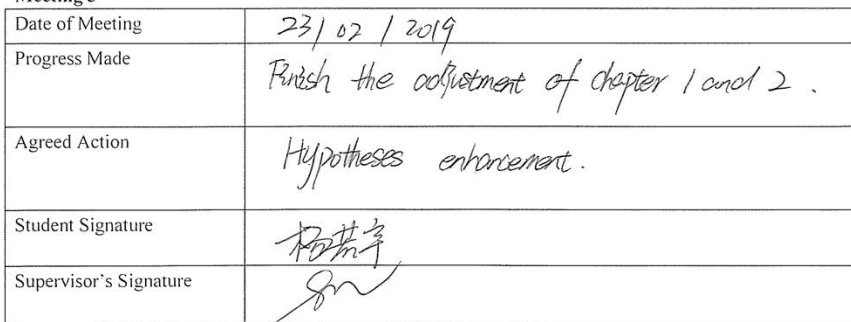 Meeting 3
Date of Meeting 23/02/2019
Progress Made Finish the adjustment of chapter 1 and 2.
Agreed Action Hypotheses enhancement.
Student Signature 杨
Supervisor's Signature